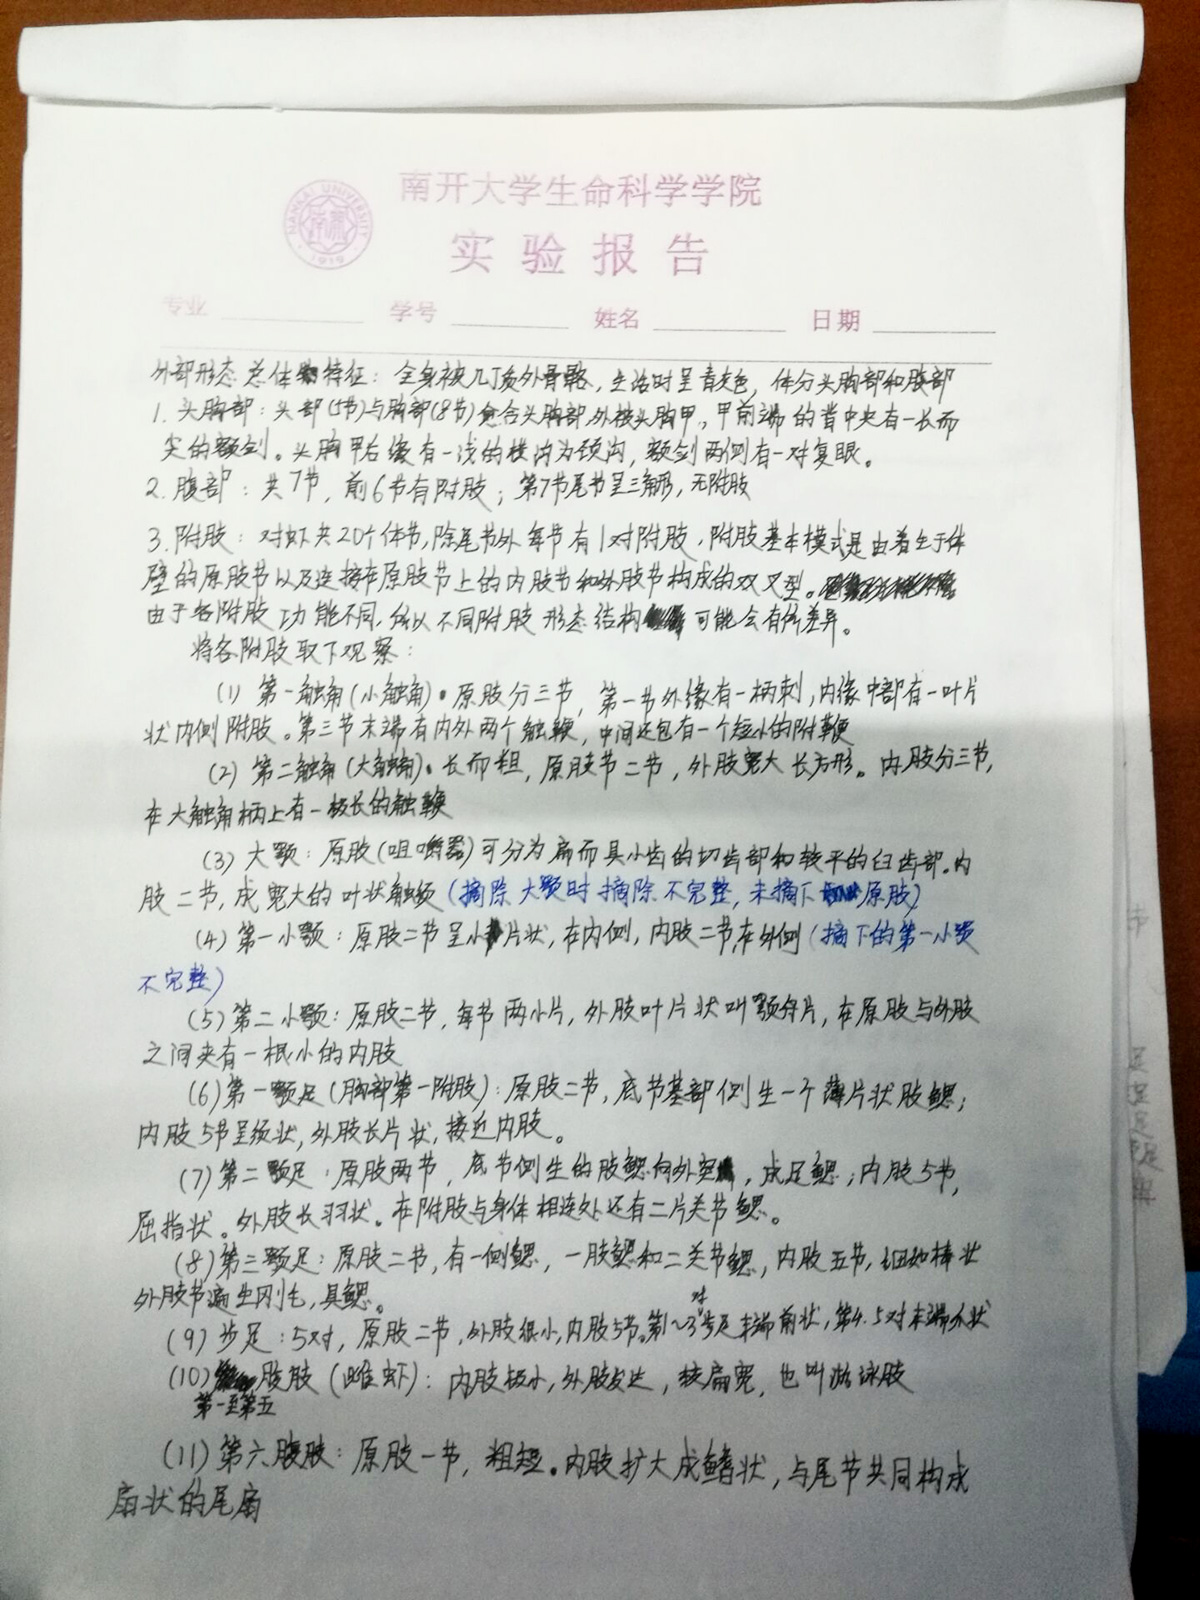 南开大学生命科学学院
NANKAI UNIVERSITY
1919
实验报告
专业 学号 姓名 日期
外部形态总体特征：全身被几丁质外骨骼，生活时呈青灰色，体分头胸部和腹部
1. 头胸部：头部(5节)与胸部(8节)愈合头胸部，外被头胸甲，甲前端的背中央有一长而
尖的额剑。头胸甲后缘有一浅的横沟为颈沟，额剑两侧有一对复眼。
2. 腹部：共7节，前6节有附肢；第7节尾节呈三角形，无附肢
3. 附肢：对虾共20个体节，除尾节外每节有1对附肢，附肢基本模式是由着生于体
壁的原肢节以及连接在原肢节上的内肢节和外肢节构成的双叉型。
由于各附肢功能不同，所以不同附肢形态结构可能会有所差异。
将各附肢取下观察：
(1) 第一触角(小触角)。原肢分三节，第一节外缘有一柄刺，内缘中部有一叶片
状内侧附肢。第三节末端有内外两个触鞭，中间还包有一个短小的附鞭
(2) 第二触角(大触角)。长而粗，原肢节二节，外肢宽大长方形。内肢分三节，
在大触角柄上有一极长的触鞭
(3) 大颚：原肢(咀嚼器)可分为扁而具小齿的切齿部和较平的臼齿部。内
肢二节，成宽大的叶状触须(摘除大颚时摘除不完整，未摘下原肢)
(4) 第一小颚：原肢二节呈小片状，在内侧，内肢二节，在外侧(摘下的第一小颚
不完整)
(5) 第二小颚：原肢二节，每节两小片，外肢叶片状叫颚舟片，在原肢与外肢
之间夹有一根小的内肢
(6) 第一颚足(胸部第一附肢)：原肢二节，底节基部侧生一个薄片状肢鳃；
内肢5节呈须状，外肢长片状，接近内肢。
(7) 第二颚足：原肢两节，底节侧生的肢鳃向外突，成足鳃；内肢5节，
屈指状。外肢长羽状。在附肢与身体相连处还有二片关节鳃。
(8) 第三颚足：原肢二节，有一侧鳃，一肢鳃和二关节鳃，内肢五节，细如棒状
外肢节遍生刚毛，具鳃。
(9) 步足：5对，原肢二节，外肢很小，内肢5节。第1~3对步足末端钳状，第4.5对末端爪状
(10) 腹肢(雌虾)：内肢极小，外肢发达，较扁宽，也叫游泳肢
第一至第五
(11) 第六腹肢：原肢一节，粗短。内肢扩大成鳍状，与尾节共同构成
扇状的尾扇